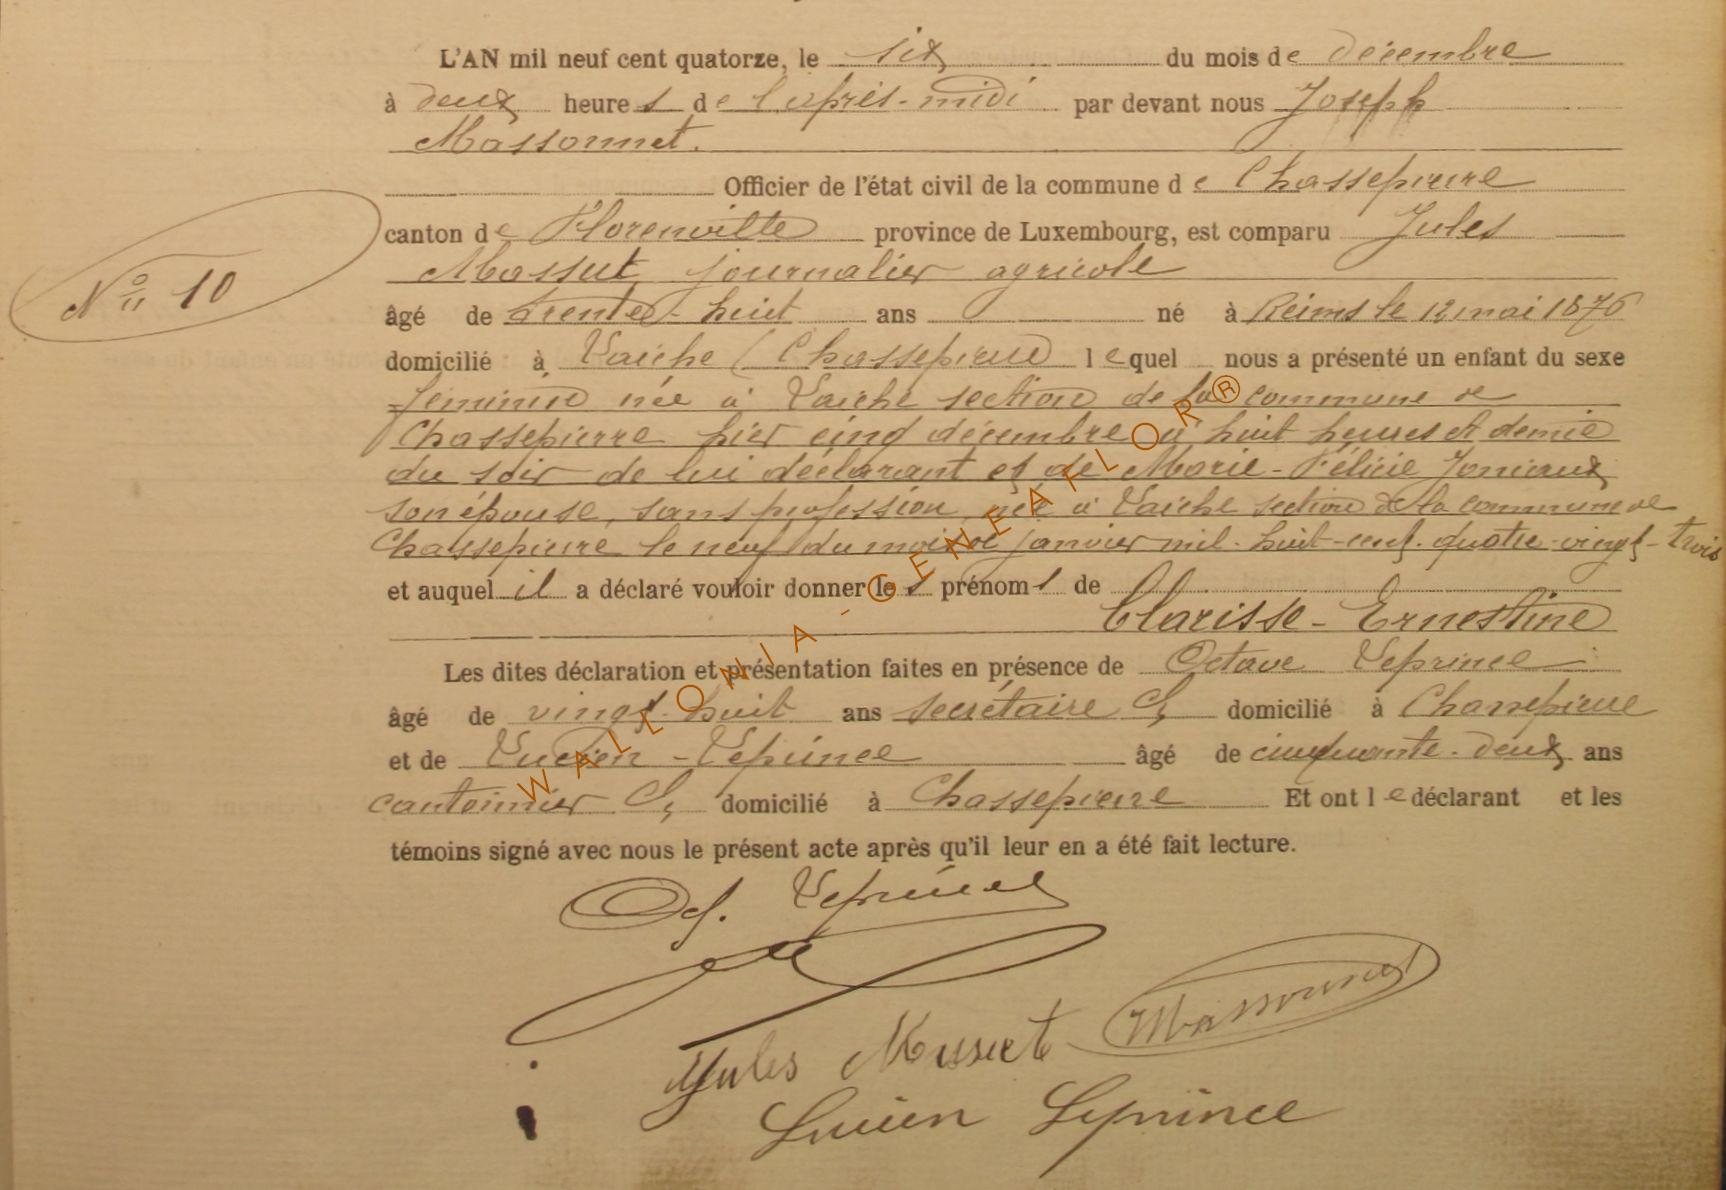 L'AN mil neuf cent quatorze, le six du mois de décembre
à deux heures de l'après-midi par devant nous Joseph
Massonnet.
Officier de l'état civil de la commune de Chassepierre
canton de Florenville province de Luxembourg, est comparu Jules
Massut journalier agricole
N° 10
âgé de trente-huit ans né à Reims le 12 mai 1876
domicilié à Laiche (Chassepierre lequel nous a présenté un enfant du sexe
féminin née à Laiche section de la commune de
Chassepierre hier cinq décembre à huit heures et demie
du soir de lui déclarant et de Marie-Félicie Joniaux
son épouse, sans profession, née à Laiche section de la commune de
Chassepierre le neuf du mois de janvier mil-huit-cent-quatre-vingt-trois
et auquel il a déclaré vouloir donner les prénoms de
Clarisse-Ernestine
Les dites déclaration et présentation faites en présence de Octave Leprince
âgé de vingt-huit ans secrétaire Cl domicilié à Chassepierre
et de Lucien-Leprince âgé de cinquante-deux ans
cantonnier Cl domicilié à Chassepierre Et ont le déclarant et les
témoins signé avec nous le présent acte après qu'il leur en a été fait lecture.
Oct. Leprince
Massonnet
Jules Massut
Lucien Leprince
WALLONIA - GENEAFLOR®